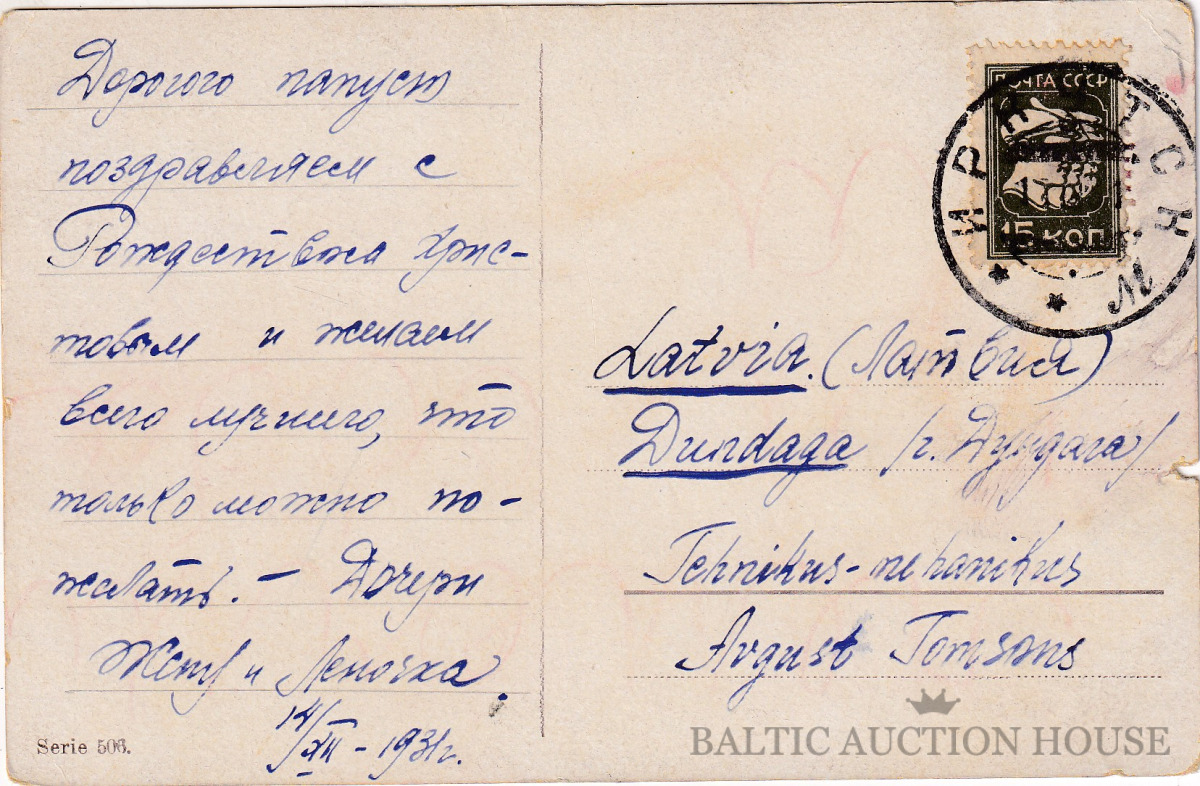 Дорогого папуст
поздравляем с
Рождеством Хрис-
товым и желаем
всего лучшего, что
только можно по-
желать. – Дочери
и Леночка.
14/XII – 1931г.
Serie 506.
ПОЧТА СССР
15 КОП
Latvia. (Латвия)
Dundaga /г. Дундага/
Tehnikus-mehanikus
Avgust Tomsons
BALTIC AUCTION HOUSE